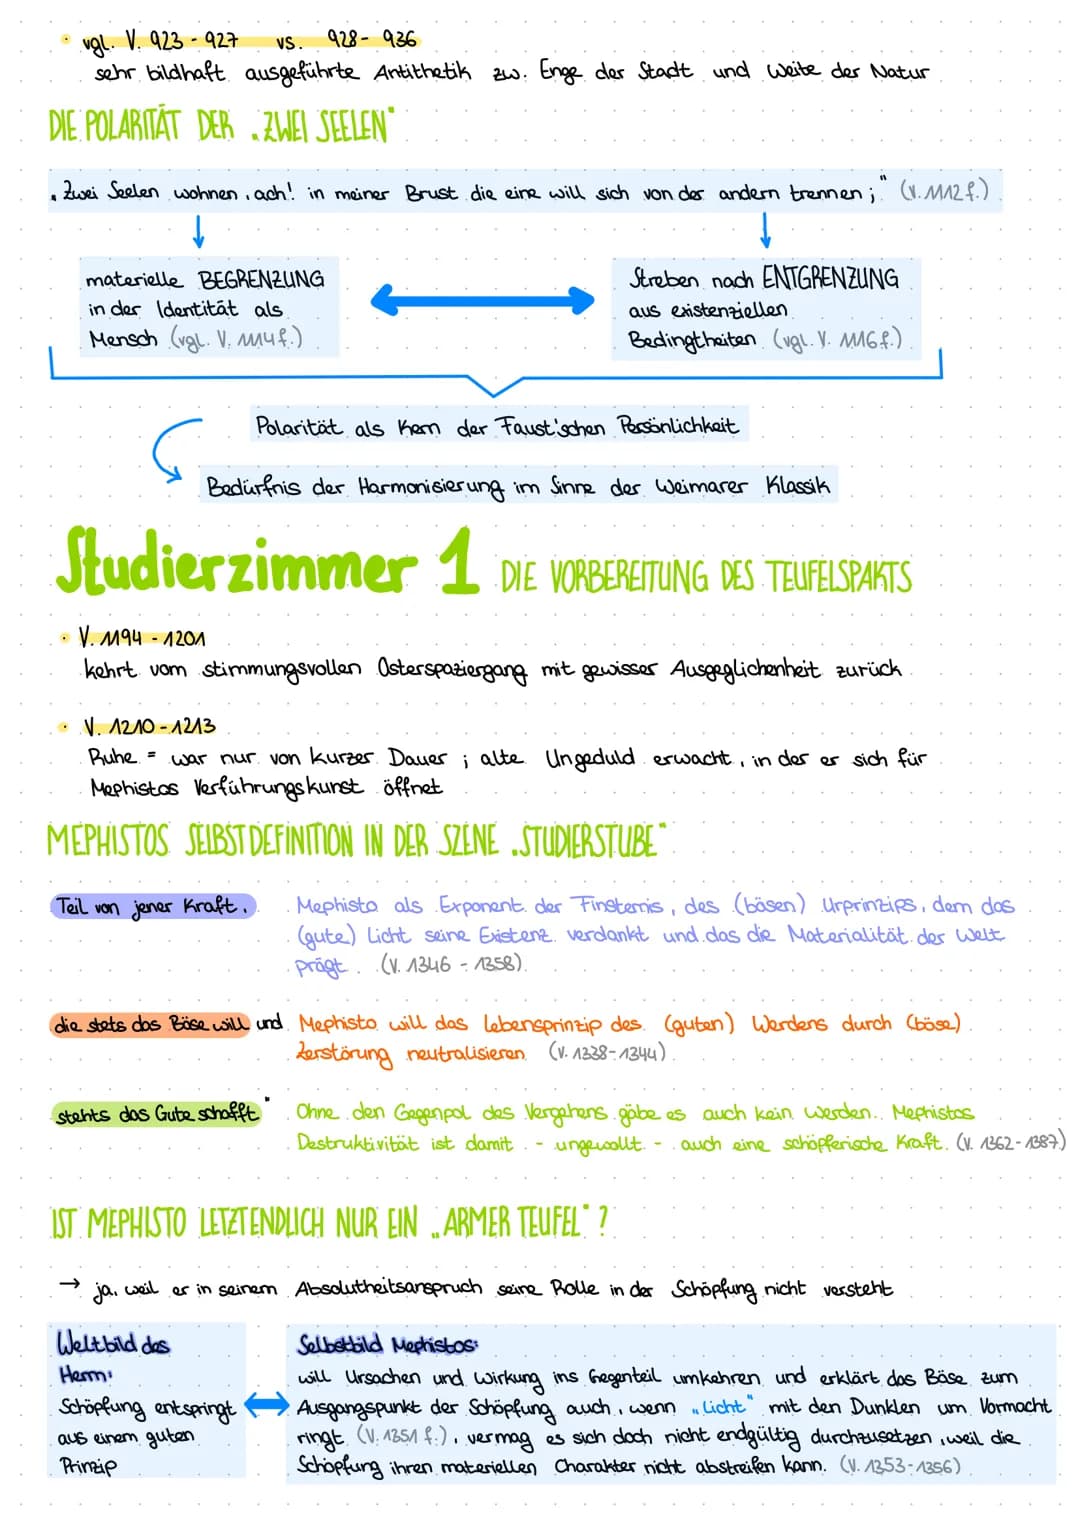 • vgl. V. 923 - 927 vs. 928 - 936
sehr bildhaft ausgeführte Antithetik zw. Enge der Stadt und Weite der Natur
DIE POLARITÄT DER „ZWEI SEELEN"
„Zwei Seelen wohnen, ach! in meiner Brust die eine will sich von der andern trennen;" (V. 1112 f.)
materielle BEGRENZUNG
in der Identität als
Mensch (vgl. V. 1114 f.)
Streben nach ENTGRENZUNG
aus existenziellen
Bedingtheiten (vgl. V. 1116 f.)
Polarität als Kern der Faust'schen Persönlichkeit
Bedürfnis der Harmonisierung im Sinne der Weimarer Klassik
Studierzimmer 1 DIE VORBEREITUNG DES TEUFELSPAKTS
• V. 1194 - 1201
kehrt vom stimmungsvollen Osterspaziergang mit gewisser Ausgeglichenheit zurück
• V. 1210 - 1213
Ruhe = war nur von kurzer Dauer ; alte Ungeduld erwacht, in der er sich für
Mephistos Verführungskunst öffnet
MEPHISTOS SELBSTDEFINITION IN DER SZENE „STUDIERSTUBE"
Teil von jener Kraft, Mephisto als Exponent der Finsternis, des (bösen) Urprinzips, dem das
(gute) Licht seine Existenz verdankt und das die Materialität der Welt
prägt. (V. 1346 - 1358)
die stets das Böse will und Mephisto will das Lebensprinzip des (guten) Werdens durch (böse)
Zerstörung neutralisieren (V. 1338 - 1344)
stehts das Gute schafft" Ohne den Gegenpol des Vergehens gäbe es auch kein Werden. Mephistos
Destruktivität ist damit - ungewollt - auch eine schöpferische Kraft. (V. 1362 - 1387)
IST MEPHISTO LETZTENDLICH NUR EIN „ARMER TEUFEL"?
→ ja, weil er in seinem Absolutheitsanspruch seine Rolle in der Schöpfung nicht versteht
Weltbild des
Herrn:
Schöpfung entspringt
aus einem guten
Prinzip
Selbstbild Mephistos:
will Ursachen und Wirkung ins Gegenteil umkehren und erklärt das Böse zum
Ausgangspunkt der Schöpfung auch, wenn „Licht" mit den Dunklen um Vormacht
ringt (V. 1351 f.), vermag es sich doch nicht endgültig durchzusetzen, weil die
Schöpfung ihren materiellen Charakter nicht abstreifen kann. (V. 1353 - 1356)